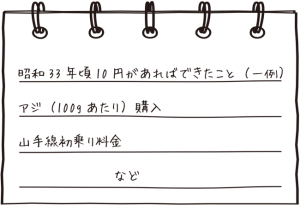 昭和33年頃10円があればできたこと（一例）
アジ（100gあたり）購入
山手線初乗り料金
など